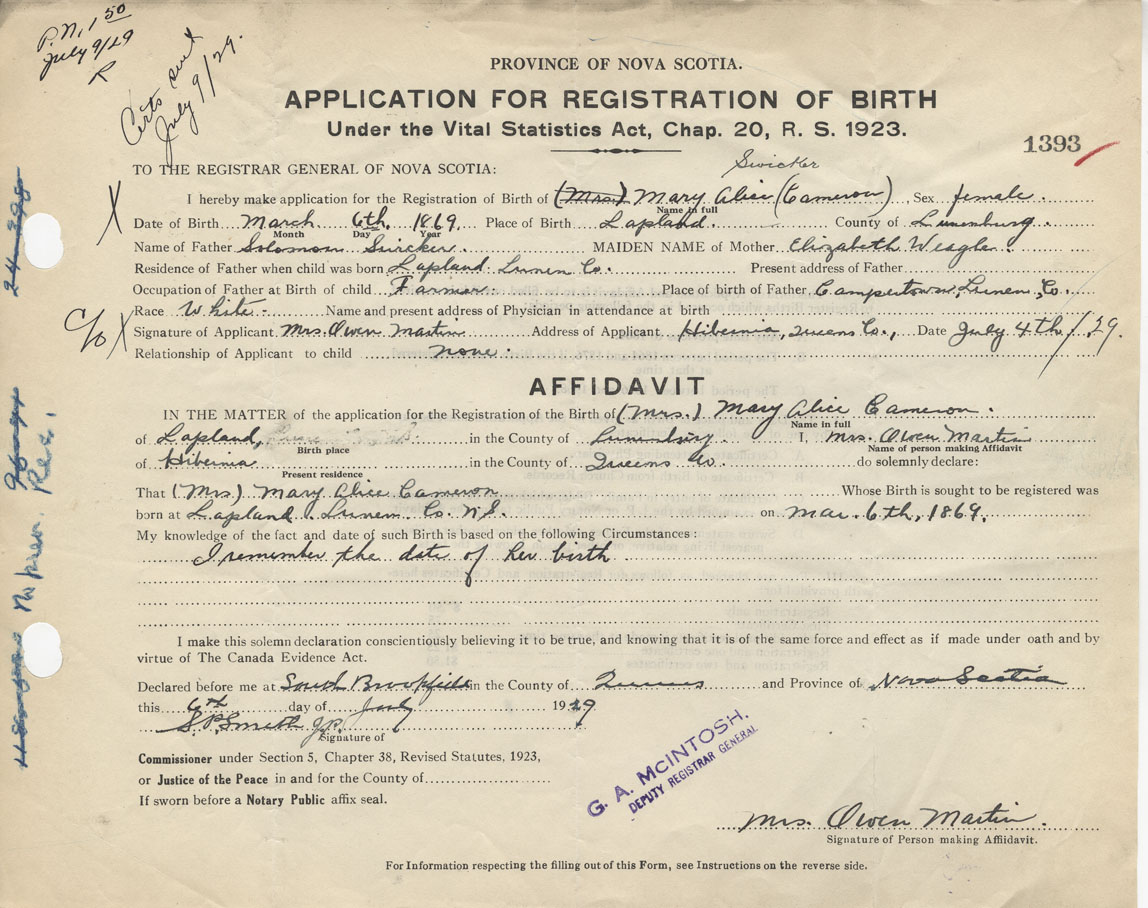 P.N. 1 50
July 9/29
R
Certs sent
July 9/29.
PROVINCE OF NOVA SCOTIA.
APPLICATION FOR REGISTRATION OF BIRTH
Under the Vital Statistics Act, Chap. 20, R. S. 1923.
1393
TO THE REGISTRAR GENERAL OF NOVA SCOTIA:
Swicker
I hereby make application for the Registration of Birth of (Mrs.) Mary Alice (Cameron) Sex female.
Name in full
Date of Birth March 6th, 1869 Place of Birth Lapland. County of Lunenburg.
Month Day Year
Name of Father Solomon Swicker. MAIDEN NAME of Mother Elizabeth Weagle.
Residence of Father when child was born Lapland Lunen Co. Present address of Father
Occupation of Father at Birth of child Farmer. Place of birth of Father Campertown, Lunen, Co.
Race White - Name and present address of Physician in attendance at birth
C/o X Signature of Applicant Mrs. Owen Martin Address of Applicant Hibernia, Queens Co., Date July 4th/29.
Relationship of Applicant to child none.
AFFIDAVIT
IN THE MATTER of the application for the Registration of the Birth of (Mrs.) Mary Alice Cameron.
Name in full
of Lapland, in the County of Lunenburg. I, Mrs. Owen Martin
Birth place Name of person making Affidavit
of Hibernia in the County of Queens Co. do solemnly declare:
Present residence
That (Mrs) Mary Alice Cameron Whose Birth is sought to be registered was
born at Lapland. Lunen Co. N.S. on Mar. 6th, 1869.
My knowledge of the fact and date of such Birth is based on the following Circumstances:
I remember the date of her birth
I make this solemn declaration conscientiously believing it to be true, and knowing that it is of the same force and effect as if made under oath and by
virtue of The Canada Evidence Act.
Declared before me at South Brookfield in the County of Queens and Province of Nova Scotia
this 6th day of July 1929
S.P. Smith J.P.
Signature of
Commissioner under Section 5, Chapter 38, Revised Statutes, 1923,
or Justice of the Peace in and for the County of
If sworn before a Notary Public affix seal.
G. A. McINTOSH.
DEPUTY REGISTRAR GENERAL
Mrs. Owen Martin.
Signature of Person making Affiidavit.
For Information respecting the filling out of this Form, see Instructions on the reverse side.